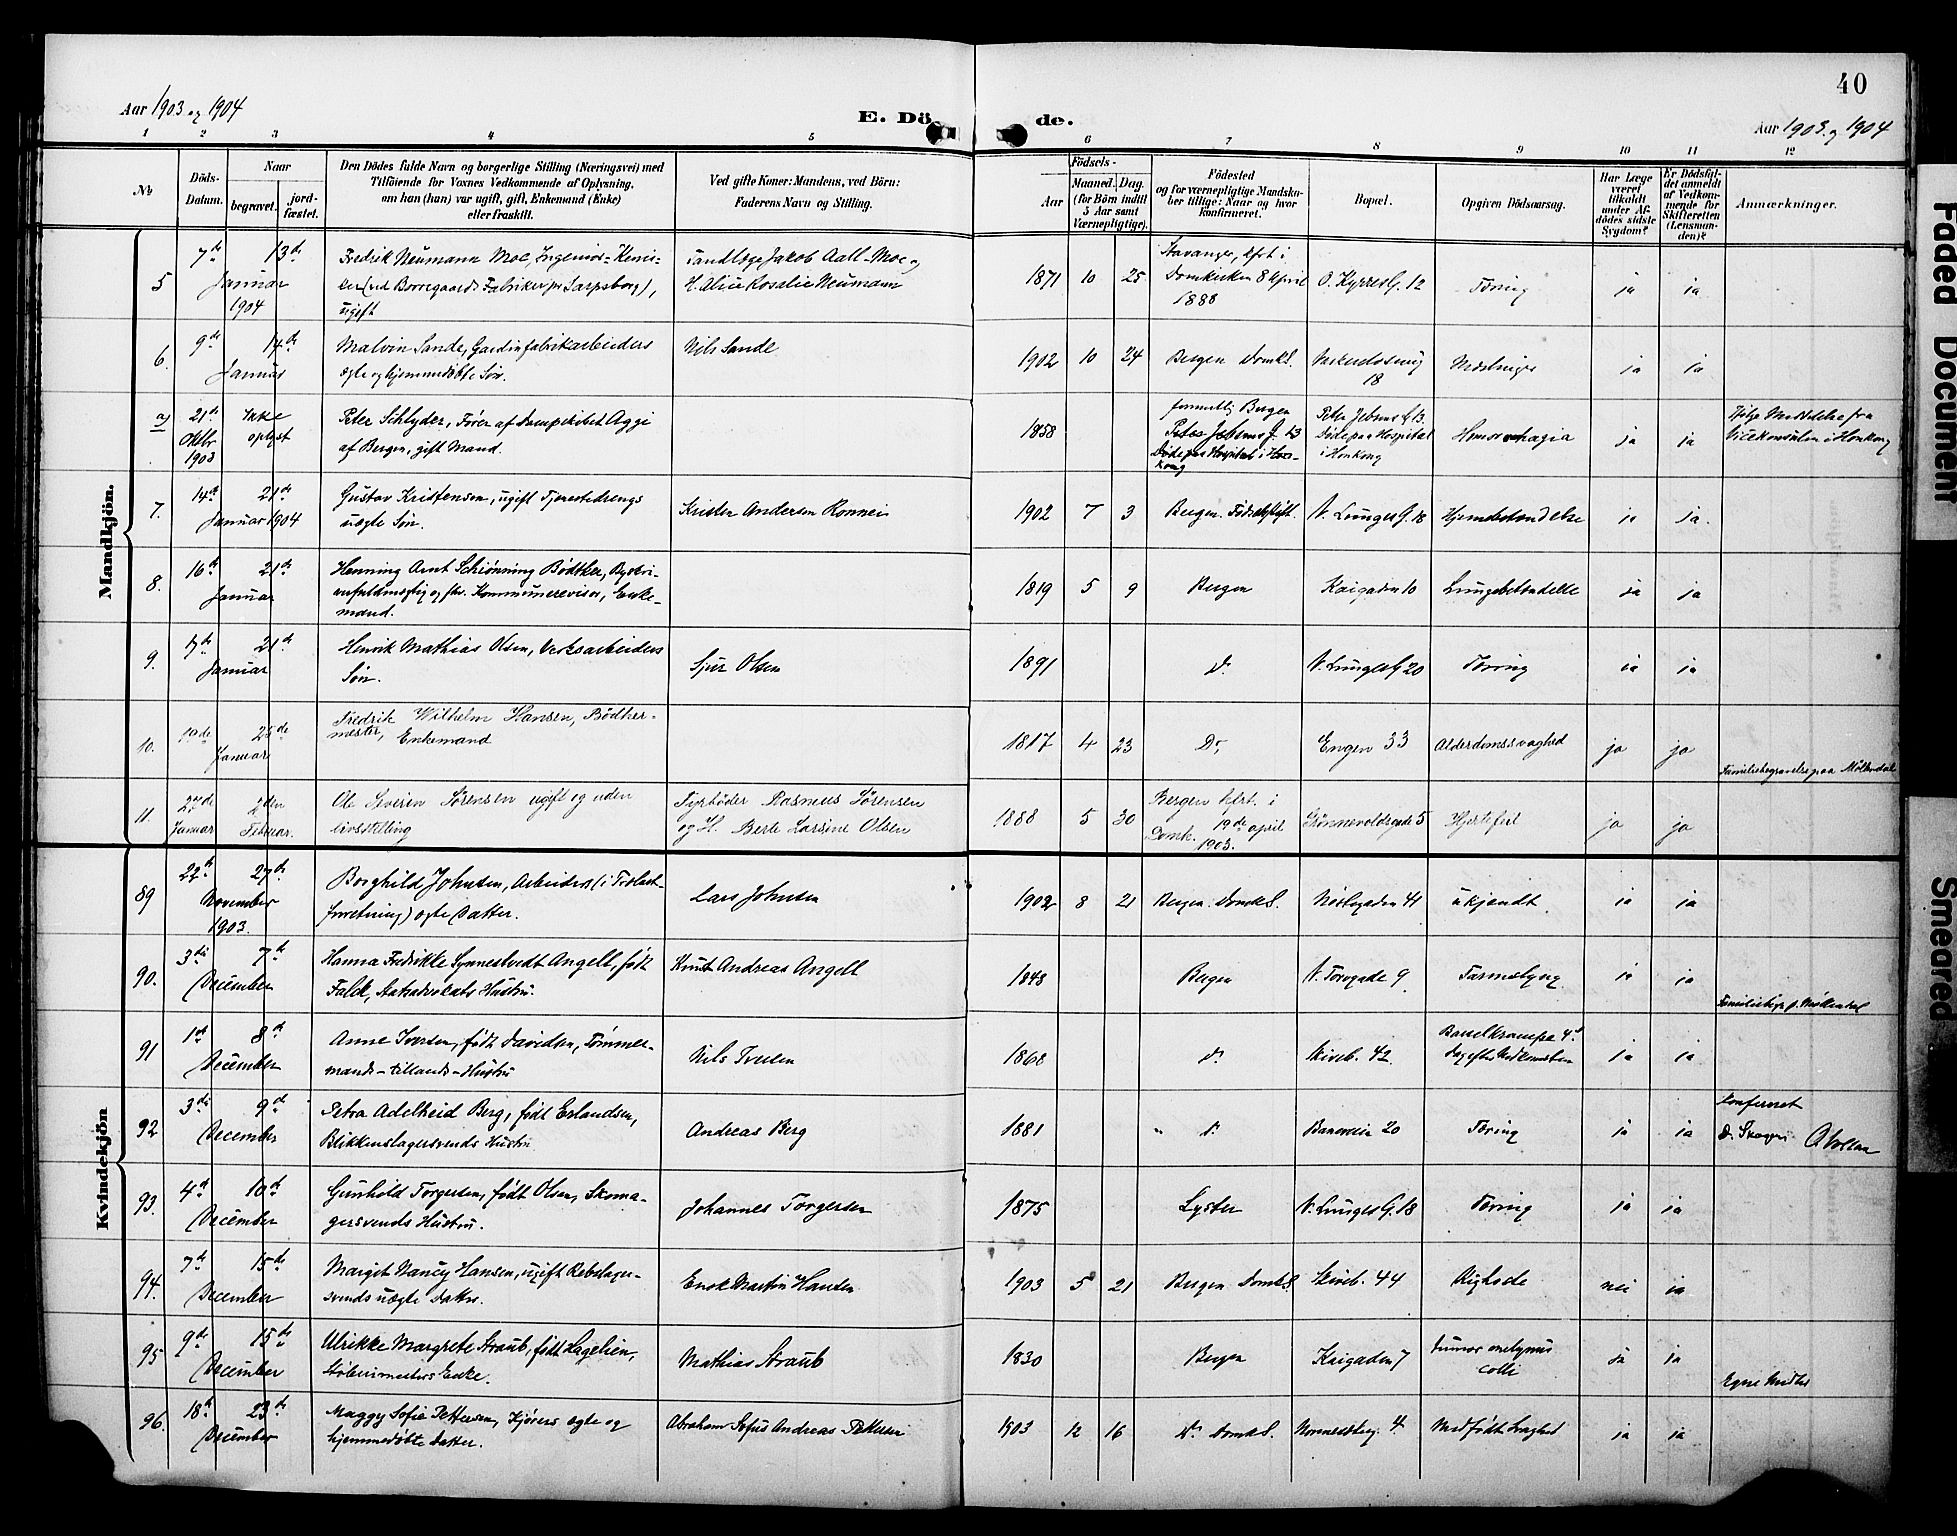 40
Aar 1903 og 1904
E. Döde.
Aar 1903 og 1904
1 2 3 4 5 6 7 8 9 10 11 12
No
Döds-Datum.
Naar
begravet.
jordfæstet.
Den Dödes fulde Navn og borgerlige Stilling (Næringsvei) med
Tilföiende for Voxnes Vedkommende af Oplysning,
om han (hun) var ugift, gift, Enkemand (Enke)
eller fraskilt.
Ved gifte Koner: Mandens, ved Börn:
Faderens Navn og Stilling.
Födsels-
Aar
Maaned. Dag.
(for Börn indtil
5 Aar samt
Værnepligtige).
Födested
og for værnepligtige Mandskaber tillige: Naar og hvor
konfirmeret.
Bopæl.
Opgiven Dödsaarsag.
Har Læge
været
tilkaldt
under Afdödes sidste
Sygdom?
Er Dödsfaldet anmeldt
af Vedkommende for
Skifteretten
(Lensmanden)?
Anmærkninger.
Mandkjön.
5 7de 13de Januar 1904
Fredrik Neumann Moe, Ingeniør-Kemiker (ved Borregaards Fabriker pr Sarpsborg),
ugift
Tandlæge Jakob Aall-Moe og
H. Alice Rosalie Neumann
1871 10 25
Stavanger, kfrt i
Domkirken 8 April
1888
O. Kyrres G. 12 Tæring ja ja
6. 9de 14de Januar
Malvin Sande, Gardinfabrikarbeiders
ægte og hjemmedøbte Søn.
Nils Sande
1902 10 24 Bergen Domk S.
18 Meslinger ja ja
a) 21de Oktbr 1903 Ikke oplyst
Peter Schlyder, Fører af Dampskibet Aggi
af Bergen, gift Mand.
1858
formentlig Bergen
Peter Jebsens G. 13
Døde paa Hospital i Honkong
Peter Jebsens G. 13.
Døde paa Hospital
i Honkong
Hemorrhagia ja ja
Ifølge Meddelelse fra
Vicekonsulen i Honkong
7. 14de 21de Januar 1904
Gustav Kristensen, ugift Tjenestedrengs
uægte Søn.
Kristen Andersen Ronnei
1902 7 3 Bergen. Fødselsstift. N. Lunges G. 18 Hjernebetændelse ja ja.
8. 16de 21de Januar
Henning Arnt Schiønning Bødtker, Byskriverfuldmægtig og fhv. Kommunerevisor, Enkemand.
1819 5 9 Bergen Kaigaden 10 Lungebetændelse ja ja
9. 21de Januar
Henrik Mathias Olsen, Verksarbeiders
Søn.
Sjur Olsen
1891 Do N. Lunges G 20 Tæring ja ja
10. 19de 25de Januar
Fredrik Wilhelm Hansen, Bødkermester, Enkemand
1817 4 23 Do, Engen 33 Alderdomssvaghed ja ja
Familiebegravelse paa Møllendal
11. 27de Januar 2den Februar.
Ole Severin Sørensen ugift og uden
livsstilling
Fyrbøder Rasmus Sørensen
og H. Berte Larsine Olsen
1888 5 30
Bergen kfrt. i
Domk. 19de april
1903.
Grønnevoldsgade 5 Hjertefeil ja ja
Kvindekjön
89 22de 27de November 1903.
Borghild Johnsen, Arbeiders (i Trælastforretning) ægte Datter.
Lars Johnsen
1902 8 21 Bergen. Domk S. 41 ukjendt ja ja
90. 3die 7de December
Hanna Fredrikke Synnestvedt Angell, født
Falck, Statsadvokats Hustru.
Knut Andreas Angell
1848 Bergen N. Torvgade 9 Tarmslyng. ja ja
Familiebegr. p. Møllendal
91 1ste 8de December
Anne Iversen, født Davidsen, Tømmermands-tillands-Hustru
Nils Iversen
1868 Do Skiveb. 42
Barselkrampe 4de
Dag efter Nedkomsten
ja ja
92 3die 9de December
Petra Adelheid Berg, født Erlandsen,
Blikkenslagersvends Hustru
Andreas Berg
1881 Do Baneveien 20 Tæring ja ja
Konfereret
93. 4de 10de December
Gunhild Torgersen, født Olsen, Skomagersvends Hustru.
Johannes Torgersen
1875 Lyster N. Lunges G. 18 Tæring ja ja
94. 7de 15de December
Margit Nancy Hansen, ugift Rebslagersvends uægte Datter.
Enok Martin Hansen
1903 5 21 Bergen Domk S. Skiveb. 44 nei ja
95 9de 15de December
Ulrikke Margrete Straub, født Hagelien,
Støbermesters Enke.
Mathias Straub
1830 Bergen Kaigaden 7
tumor
colli
ja ja
96. 18de 23de December
Maggy Sofie Pettersen, Kjørers ægte og
hjemmedøbte Datter.
Abraham Sofus Andreas Pettersen
1903 12 16 Do Domk S. Medfødt Svaghed ja ja
Faded Document
Smeared